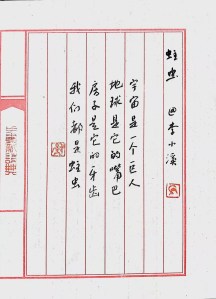 蛀虫 田李小溪
宇宙是一个巨人
地球是它的嘴巴
房子是它的牙齿
我们都是蛀虫